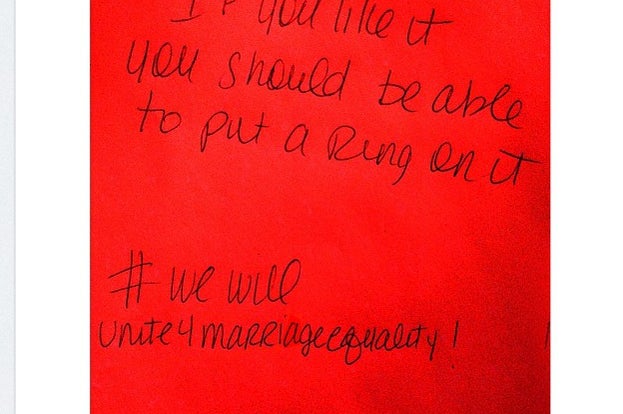 If you like it
you should be able
to put a Ring on it
# we will
unite4marriageequality!